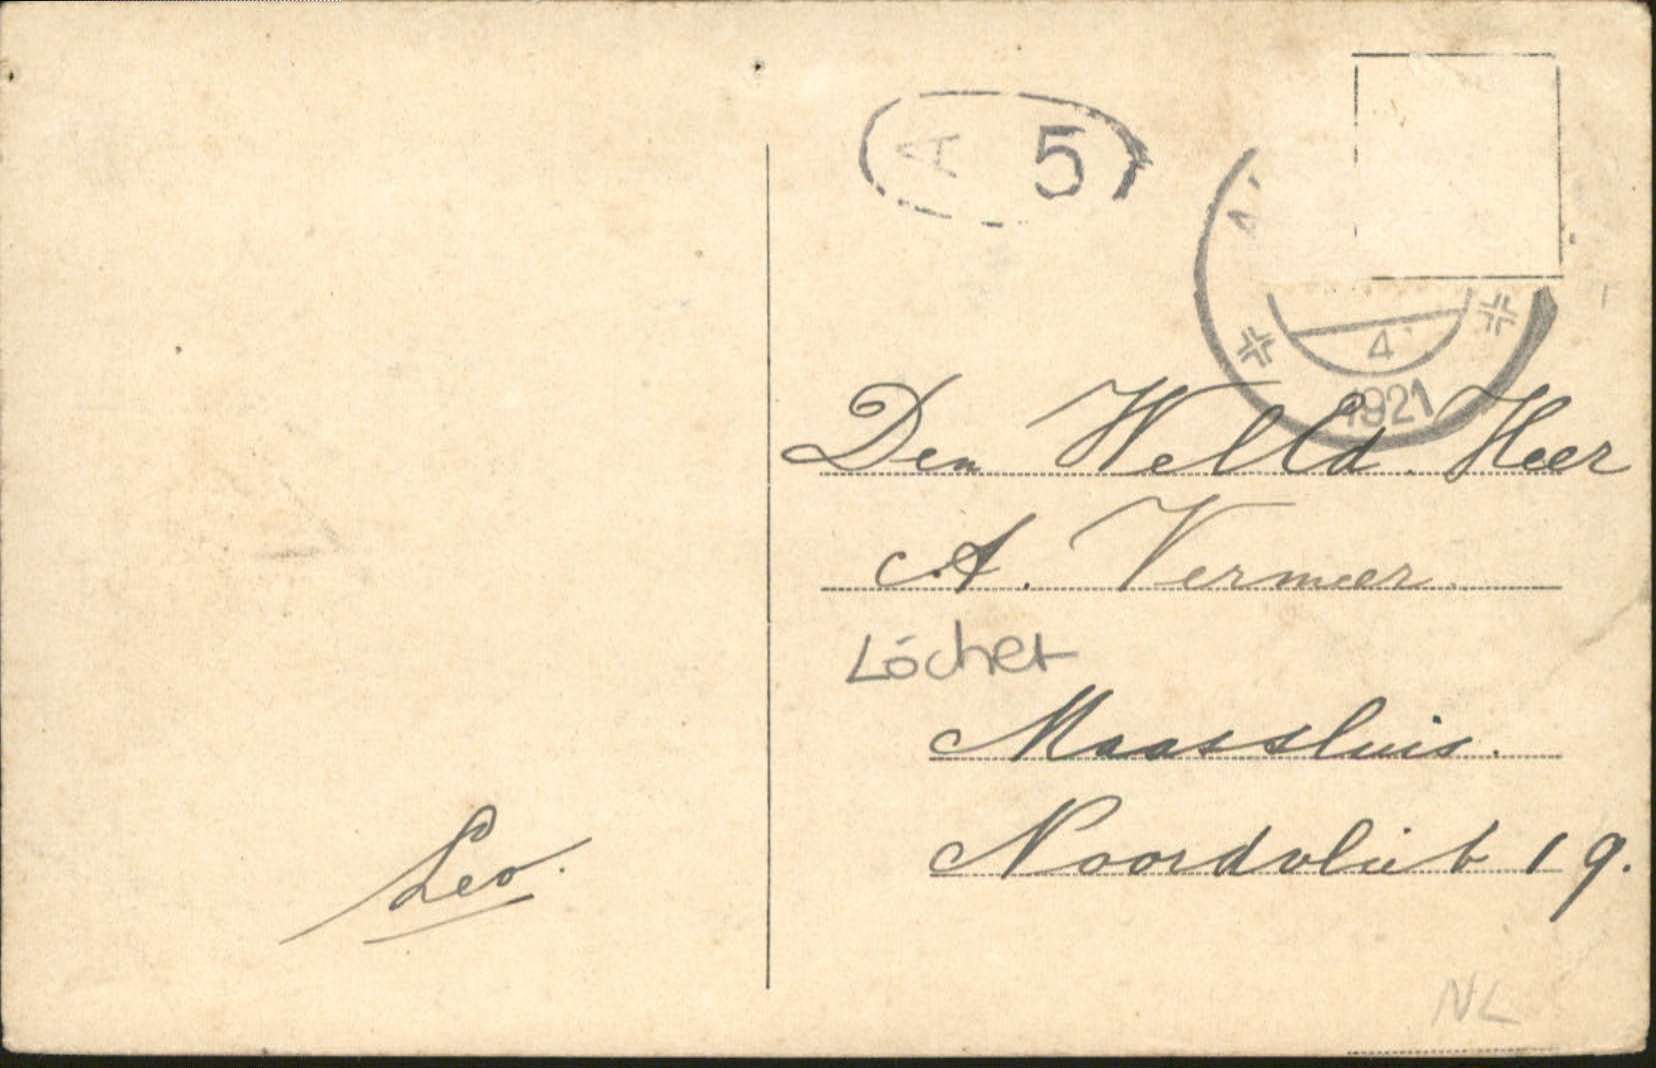 A 5
4
1921
Den WelEd. Heer
A. Vermeer.
Löcher
Maassluis.
Noordvliet 19.
Leo.
NL